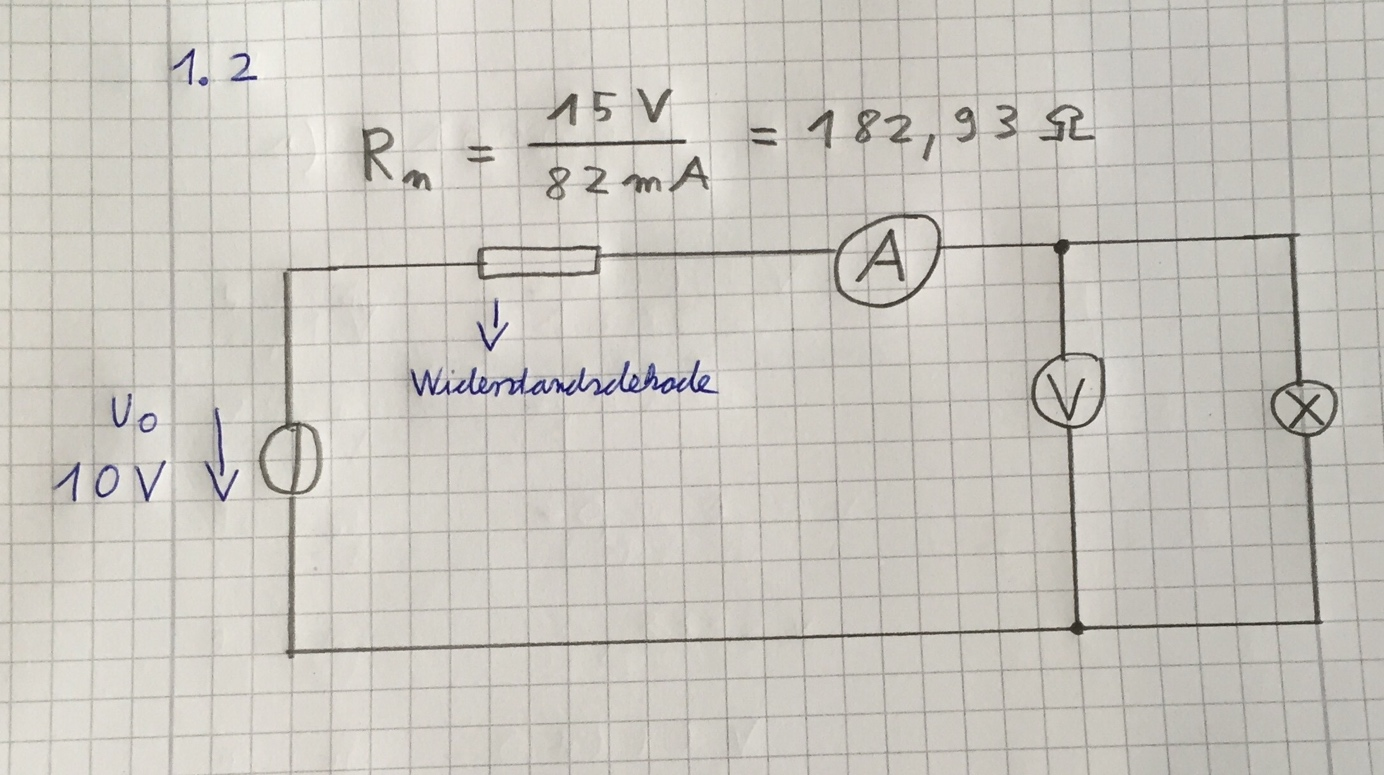 1.2
Rn = 15 V / 82 mA = 182,93 Ω
A
Widerstandsdekade
V
U0
10V